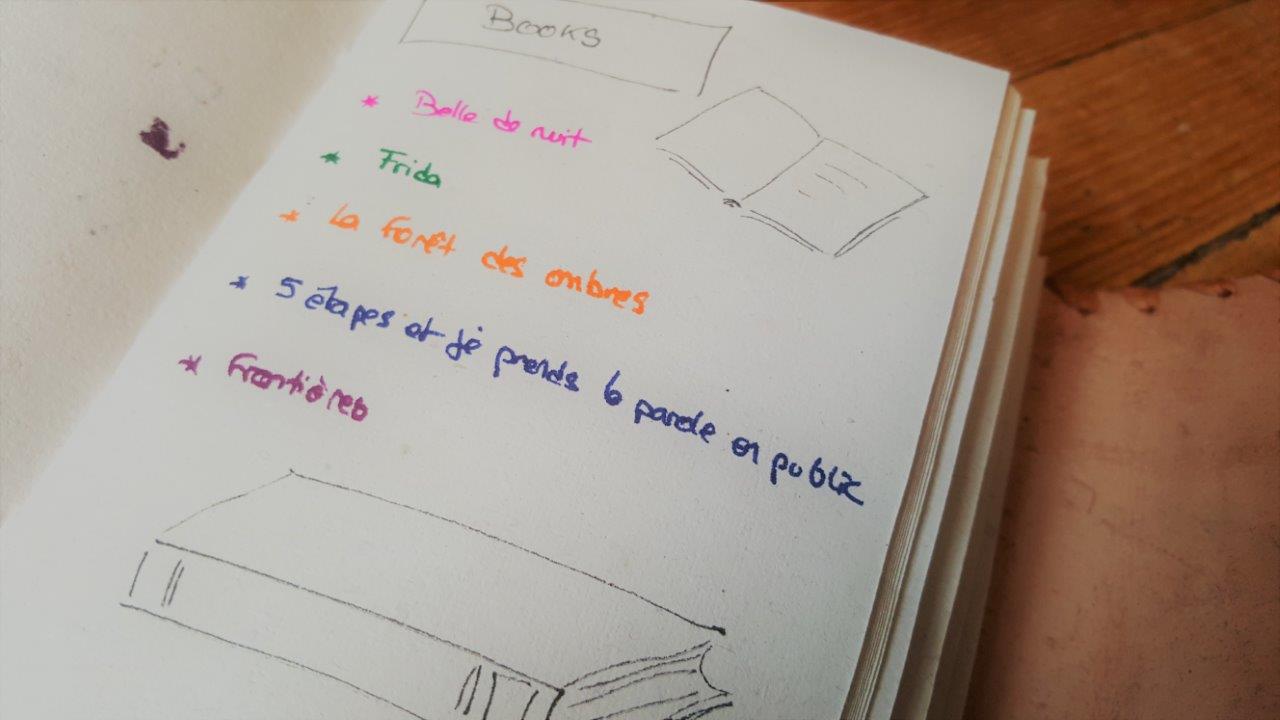 BOOKS
* Belle de nuit
* Frida
* La forêt des ombres
* 5 étapes et je prends la parole en public
* Frontières